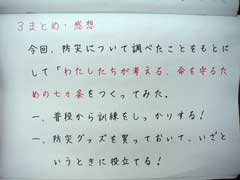 3まとめ・感想
今回、防災について調べたことをもとに
して「わたしたちが考える、命を守るた
めの七ヶ条をつくってみた。
一、普段から訓練をしっかりする!
一、防災グッズを買っておいて、いざと
いうときに役立てる!